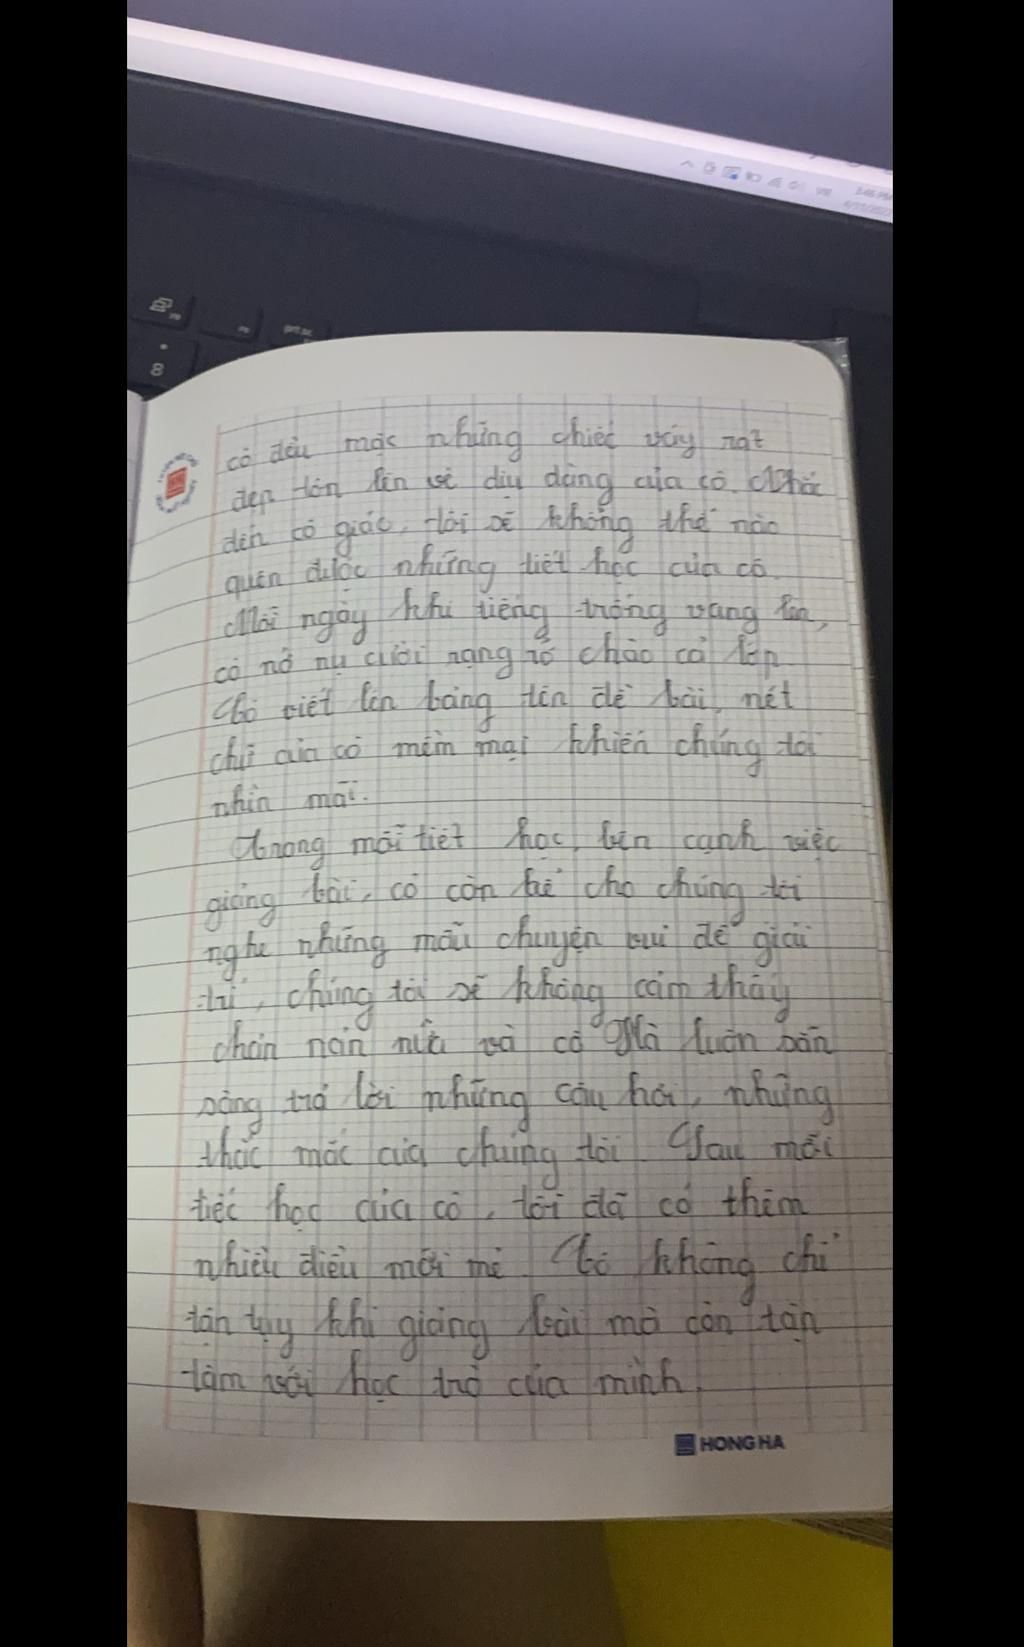 cô đều mặc những chiếc váy rất
đẹp tôn lên vẻ dịu dàng của cô. Nhắc
đến cô giáo, tôi sẽ không thể nào
quên được những tiết học của cô.
Mỗi ngày khi tiếng trống vang lên,
cô nở nụ cười rạng rỡ chào cả lớp
Cô viết lên bảng tên đề bài, nét
chữ của cô mềm mại khiến chúng tôi
nhìn mãi.
Trong mỗi tiết học, bên cạnh việc
giảng bài, cô còn kể cho chúng tôi
nghe những mẩu chuyện vui để giải
trí, chúng tôi sẽ không cảm thấy
chán nản nữa và cô Hà luôn sẵn
sàng trả lời những câu hỏi, những
thắc mắc của chúng tôi. Sau mỗi
tiếc học của cô, tôi đã có thêm
nhiều điều mới mẻ. Cô không chỉ
tận tụy khi giảng bài mà còn tận
tâm với học trò của mình.
HONG HA
8